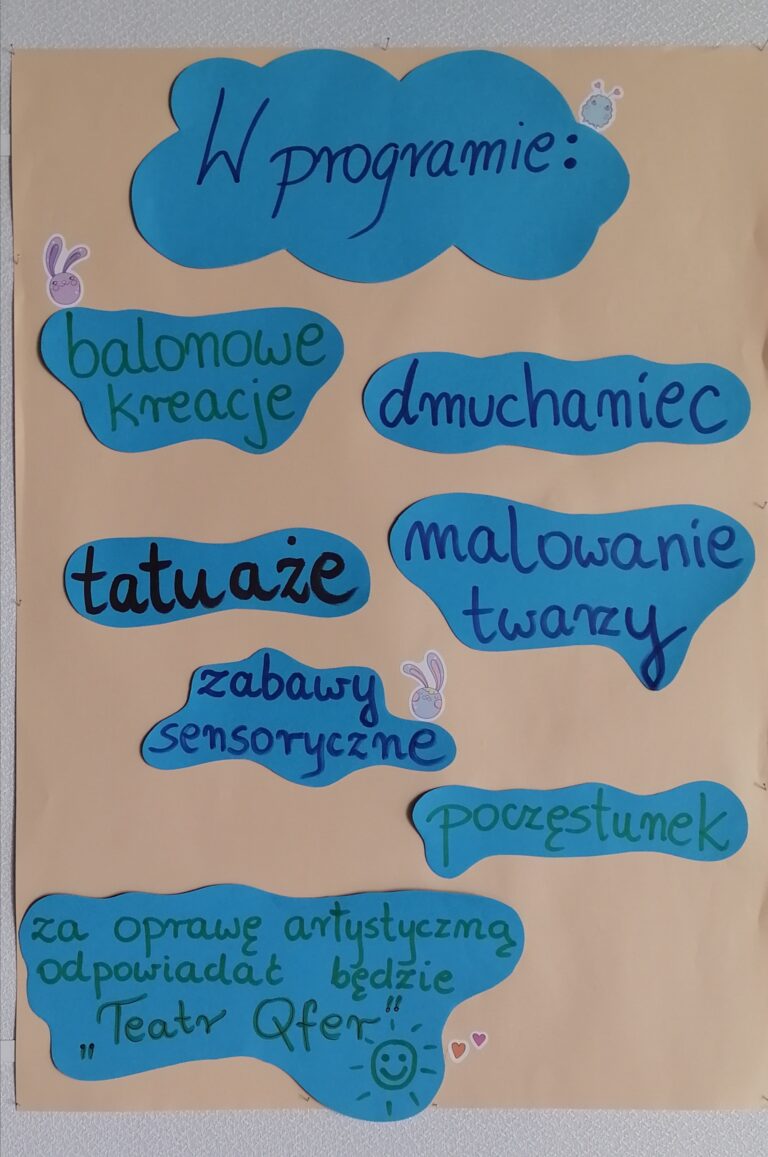 W programie:
balonowe
kreacje
dmuchaniec
tatuaże
malowanie
twarzy
zabawy
sensoryczne
poczęstunek
za oprawę artystyczną
odpowiadać będzie
„Teatr Qfer"